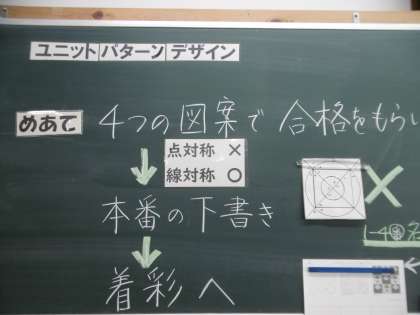 ユニットパターンデザイン
めあて 4つの図案で合格をもらい
点対称 ×
線対称 ○
本番の下書き
着彩へ